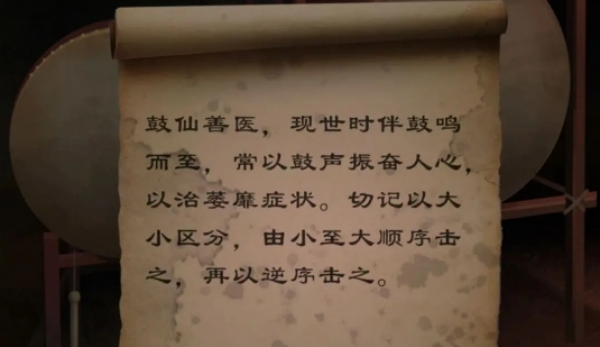 鼓仙善医，现世时伴鼓鸣
而至，常以鼓声振奋人心，
以治萎靡症状。切记以大
小区分，由小至大顺序击
之，再以逆序击之。